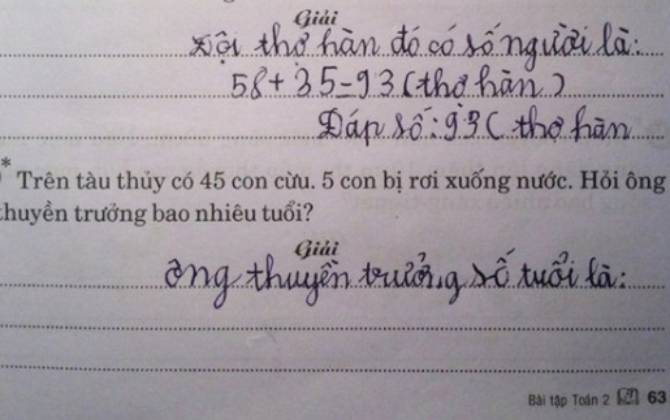 Giải
Đội thợ hàn đó có số người là:
58+35=93 (thợ hàn)
Đáp số: 93 ( thợ hàn
* Trên tàu thủy có 45 con cừu. 5 con bị rơi xuống nước. Hỏi ông
thuyền trưởng bao nhiêu tuổi?
Giải
Ông thuyền trưởng số tuổi là:
Bài tập Toán 2 63